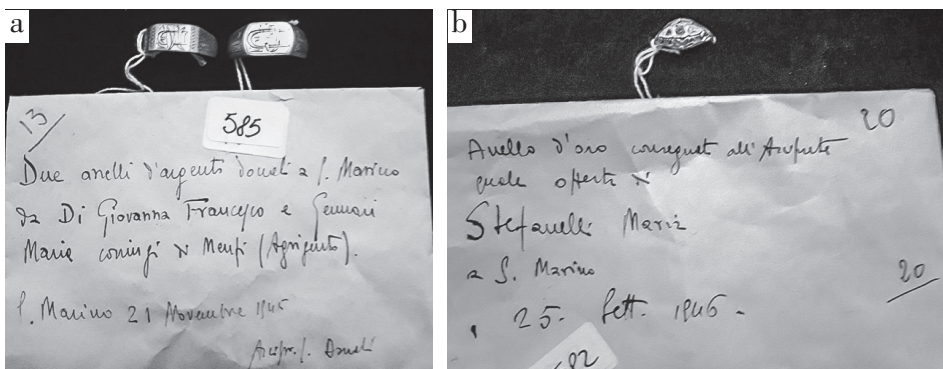 a
13
585
Due anelli d'argento donati a S. Marino
da Di Giovanna Francesco e Gennari
Maria coniugi di Menfi (Agrigento).
S. Marino 21 Novembre 1945
Arcipr. S. Donati
b
20
Anello d'oro consegnat all'Arciprete
quale offerta di
Stefanelli Maria
a S. Marino
20
25. Sett. 1946.
82